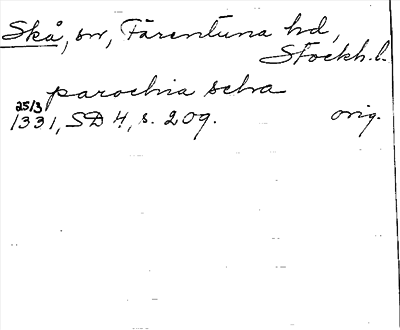 Skå, sn, Färentuna hd,
Stockh. l.
parochia scha
25/3
1331, SD 4, s. 209. orig.